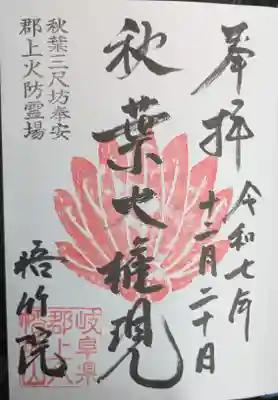 奉拝
令和七年
十二月二十日
秋葉大権現
秋葉三尺坊奉安
郡上火防霊場
悟竹院
岐阜県
郡上八
幡山